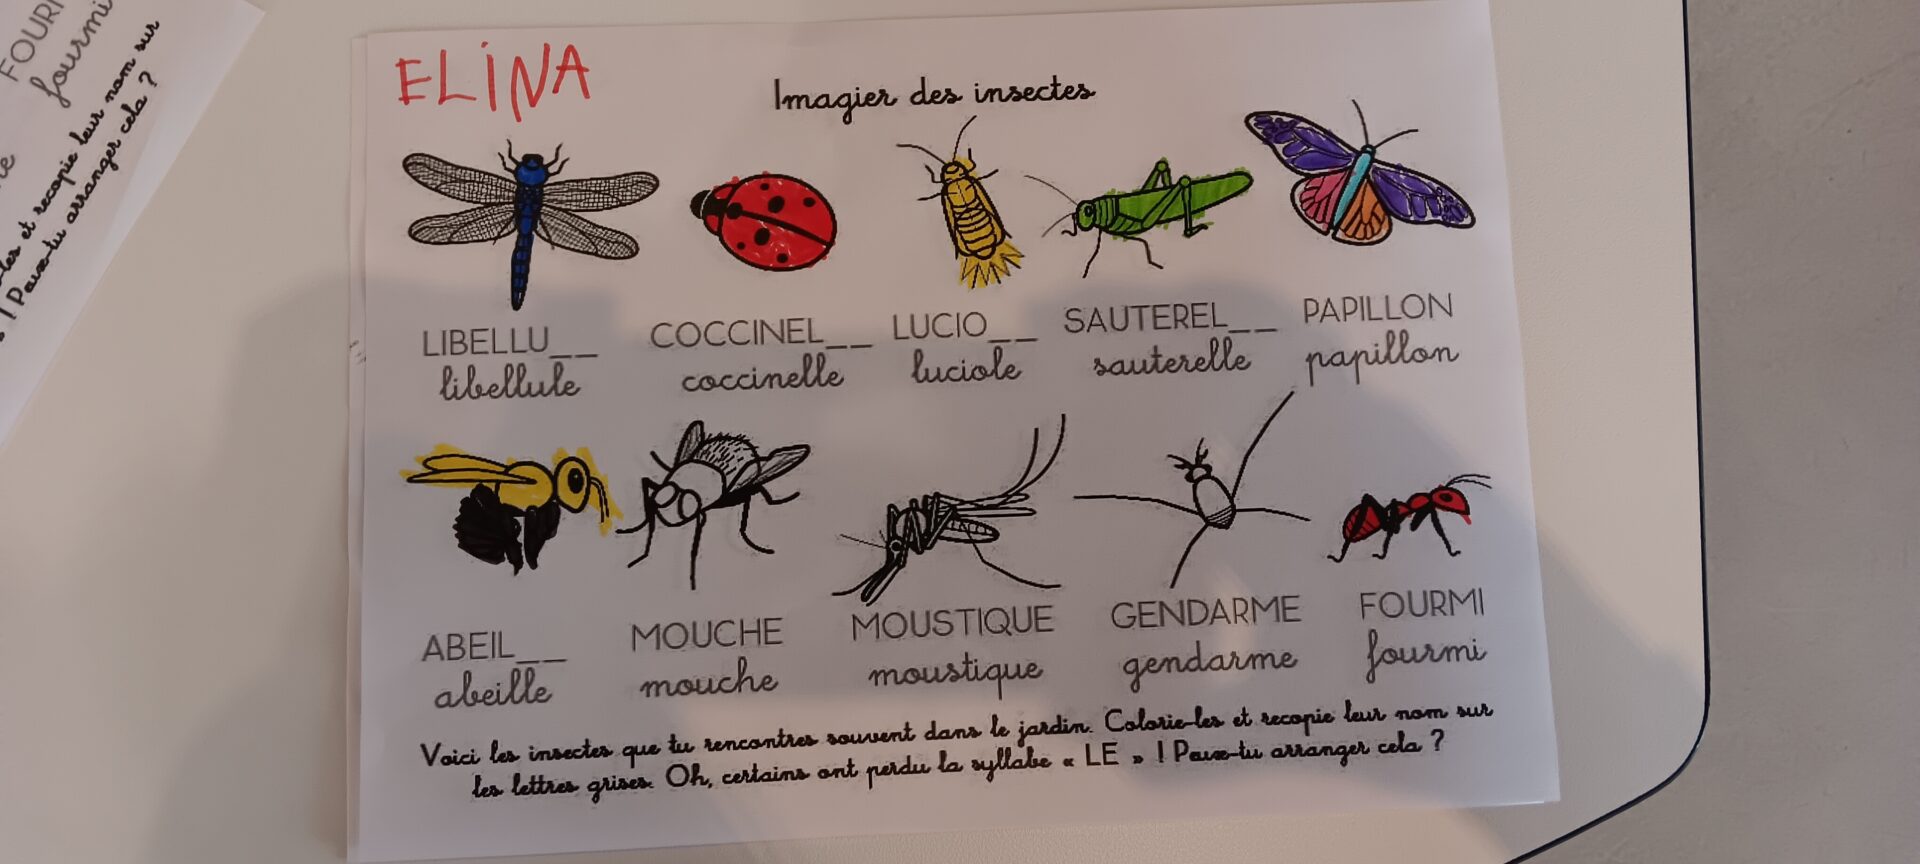 ELINA
Imagier des insectes
LIBELLU__ COCCINEL__ LUCIO__ SAUTEREL__ PAPILLON
libellule coccinelle luciole sauterelle papillon
ABEIL__ MOUCHE MOUSTIQUE GENDARME FOURMI
abeille mouche moustique gendarme fourmi
Voici les insectes que tu rencontres souvent dans le jardin. Colorie-les et recopie leur nom sur
les lettres grises. Oh, certains ont perdu la syllabe « LE » ! Peux-tu arranger cela ?
FOURM
fourmi
les et recopie leur nom sur
! Peux-tu arranger cela ?